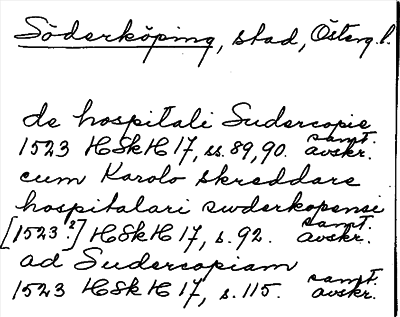 Söderköping, stad, Österg.l.
de hospitali Sudercopie
1523 HSkH 17, ss. 89, 90. samt. avskr.
cum Karolo skreddare
hospitalari swderkopensi
[1523?] HSkH 17, s. 92. samt. avskr.
ad Sudercopiam
1523 HSkH 17, s. 115. samt. avskr.